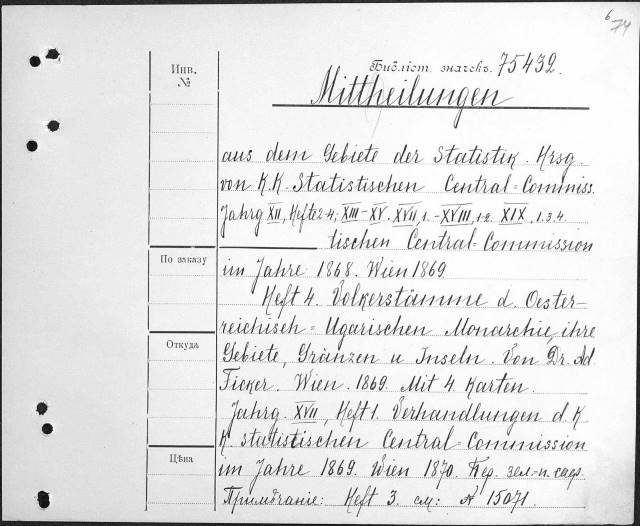 6
74
Библіот. значекъ. 75432.
Инв.
№
Mittheilungen
aus dem Gebiete der Statistik. Hrsg.
von K.K. Statistischen Central=Commiss.
Jahrg XII, Heft 2-4; XIII-XV. XVII, 1.-XVIII, 1.2. XIX, 1.3.4.
tischen Central=Commission
По заказу
im Jahre 1868. Wien 1869.
Heft 4. Volkerstämme d. Oester-
reichisch=Ugarischen Monarchie, ihre
Откуда
Gebiete, Gränzen u Inseln. Von Dr. Ad
Ficker. Wien. 1869. Mit 4. Karten.
Jahrg. XVII, Heft 1. Verhandlungen d. K
K statistischen Central=Commission
Цѣна
im Jahre 1869. Wien 1870.
Примѣчаніе: Heft 3. см: A 15071.